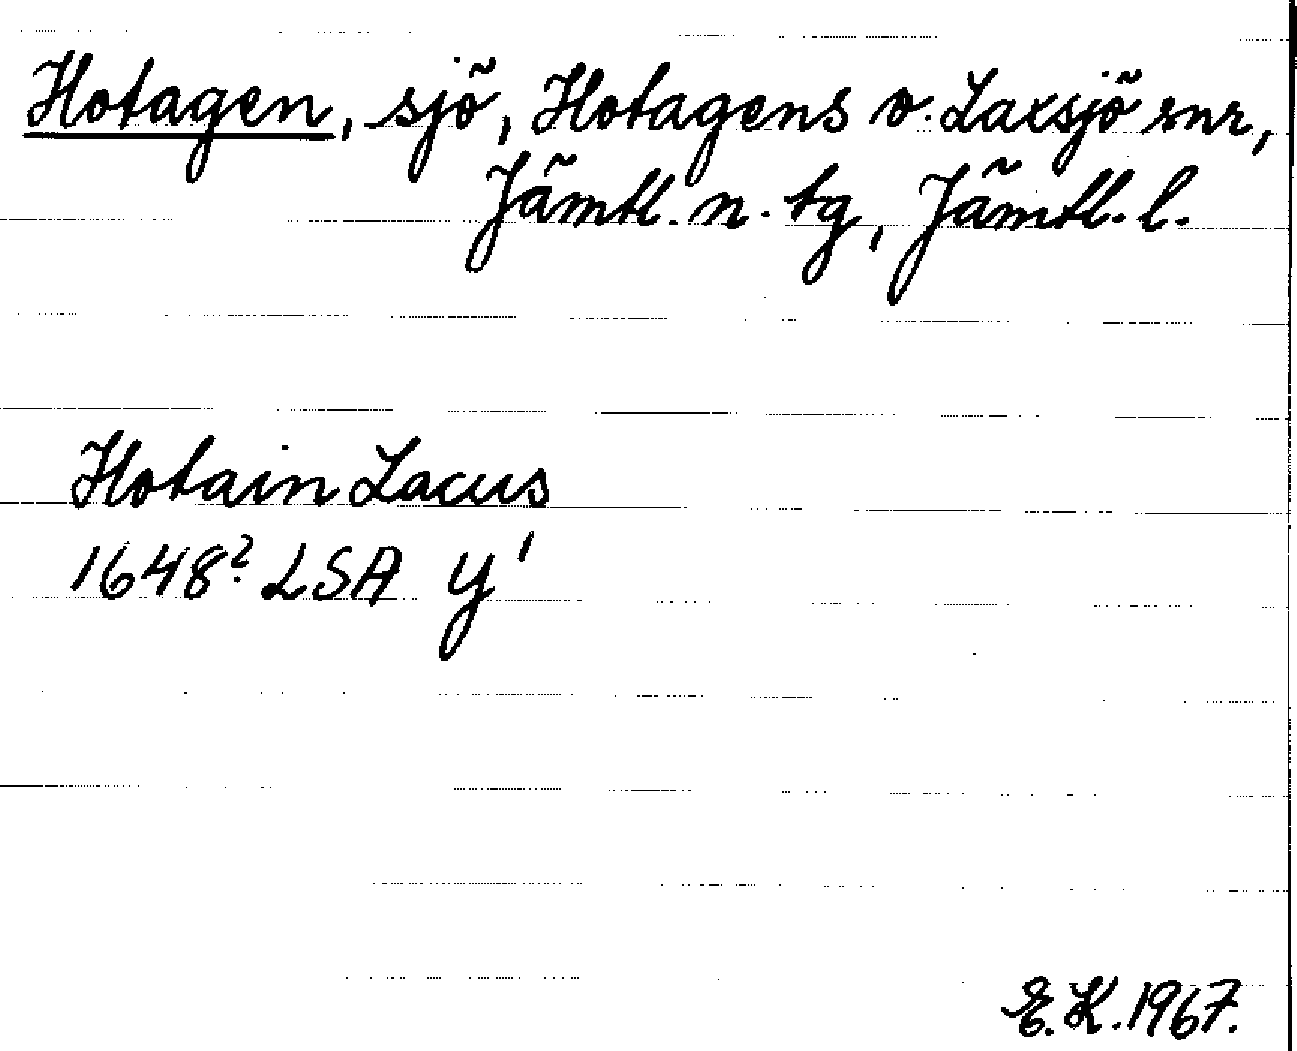 Hotagen, sjö, Hotagens o. Laxsjö snr,
Jämtl. n. tg, Jämtl. l.
Hotain Lacus
1648? LSA y'
E.K. 1967.